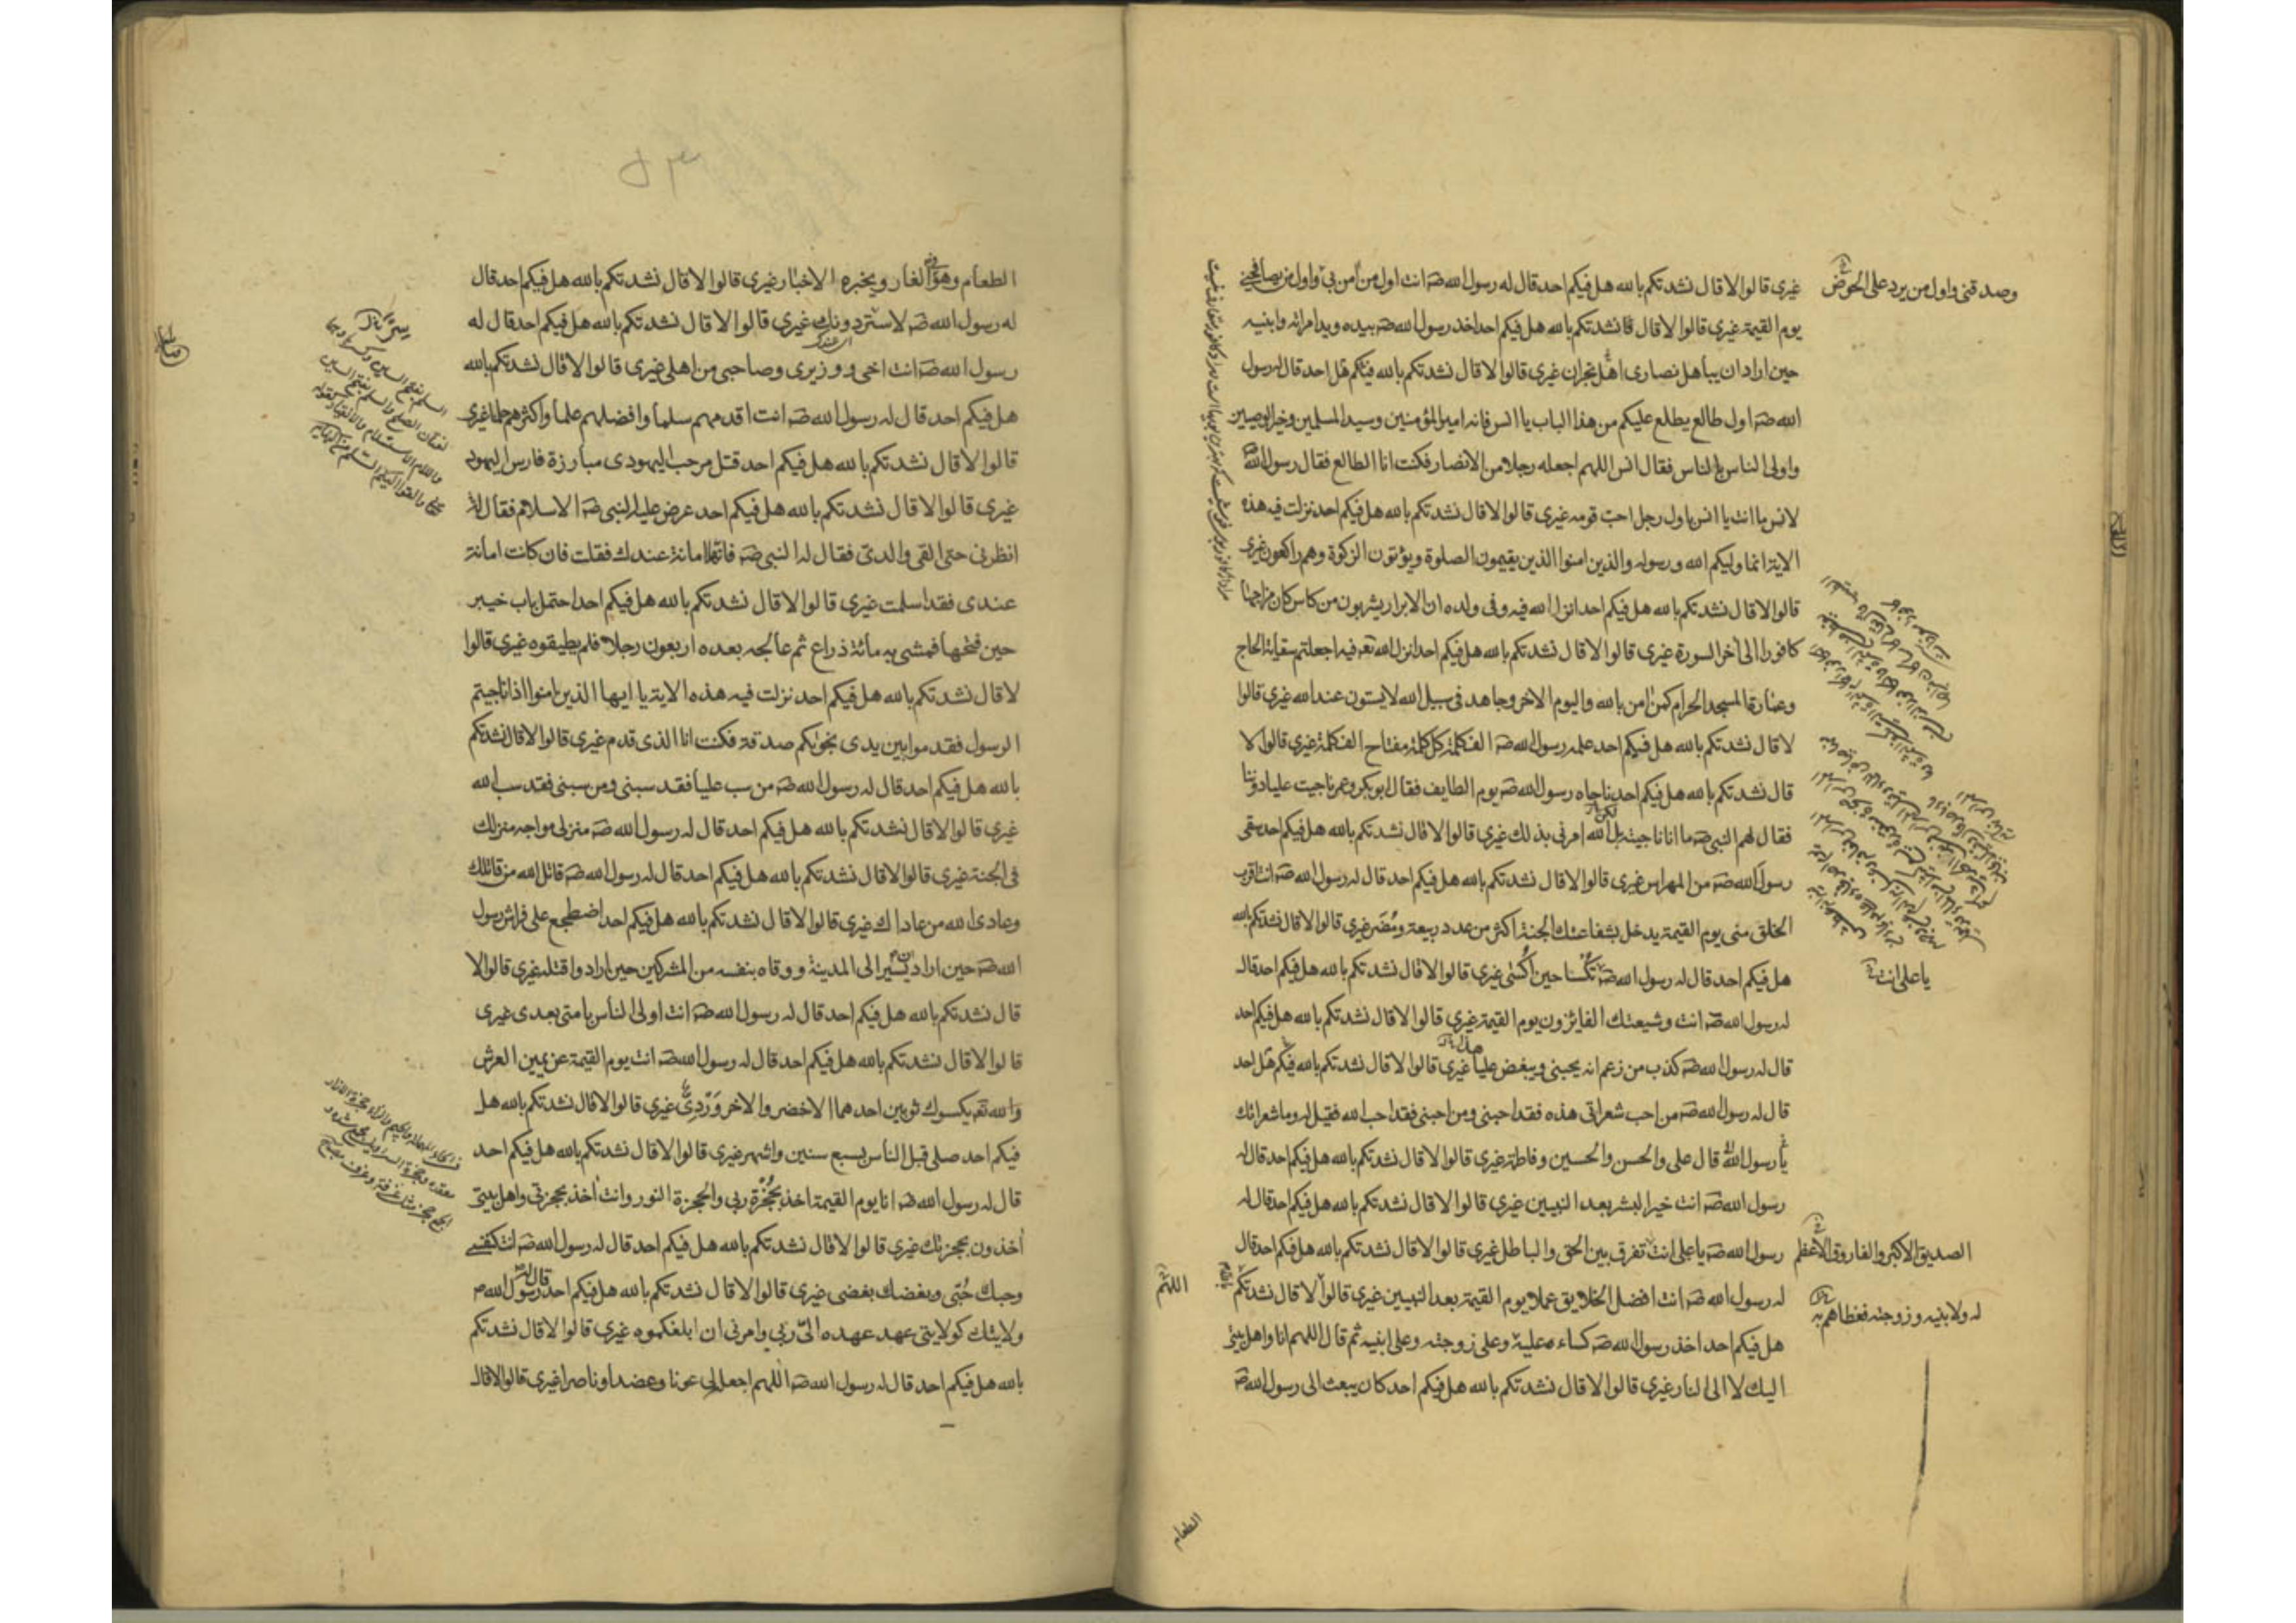 غيرى قالوا لا قال نشدتكم بالله هل فيكم احد قال له رسول الله صه انت اول من امن بى واول من يصافحنى
يوم القيمة غيرى قالوا لا قال فانشدتكم بالله هل فيكم احد اخذ رسول الله صه بيده ويد امراته وابنيه
حين اراد ان يباهل نصارى اهل نجران غيرى قالوا لا قال نشدتكم بالله فيكم هل احد قال له رسول
الله صه اول طالع يطلع عليكم من هذا الباب يا انس فانه امير المؤمنين وسيد المسلمين وخير الوصيين
واولى الناس بالناس فقال انس اللهم اجعله رجلا من الانصار فكنت انا الطالع فقال رسول الله
لانس ما انت يا انس باول رجل احب قومه غيرى قالوا لا قال نشدتكم بالله هل فيكم احد نزلت فيه هذه
الاية انما وليكم الله ورسوله والذين امنوا الذين يقيمون الصلوة ويؤتون الزكوة وهم راكعون غيرى
قالوا لا قال نشدتكم بالله هل فيكم احد انزل الله فيه وفى ولده ان الابرار يشربون من كاس كان مزاجها
كافورا الى اخر السورة غيرى قالوا لا قال نشدتكم بالله هل فيكم احد انزل الله تعه فيه اجعلتم سقاية الحاج
وعمارة المسجد الحرام كمن امن بالله واليوم الاخر وجاهد فى سبيل الله لا يستون عند الله غيرى قالوا
لا قال نشدتكم بالله هل فيكم احد علمه رسول الله صه الف كلمة كل كلمة مفتاح الف كلمة غيرى قالوا لا
قال نشدتكم بالله هل فيكم احد ناجاه رسول الله صه يوم الطايف فقال ابو بكر وعمر ناجيت عليا دوننا
فقال لهم النبى صه ما انا ناجيته بل الله امرنى بذلك غيرى قالوا لا قال نشدتكم بالله هل فيكم احد سقى
رسول الله صه من المهراس غيرى قالوا لا قال نشدتكم بالله هل فيكم احد قال له رسول الله صه انت اقرب
الخلق منى يوم القيمة يدخل بشفاعتك الجنة اكثر من عدد ربيعة ومضر غيرى قالوا لا قال نشدتكم بالله
هل فيكم احد قال له رسول الله صه تكسا حين اكسى غيرى قالوا لا قال نشدتكم بالله هل فيكم احد قال
له رسول الله صه انت وشيعتك الفايزون يوم القيمة غيرى قالوا لا قال نشدتكم بالله هل فيكم احد
قال له رسول الله صه كذب من زعم انه يحبنى ويبغض عليا غيرى قالوا لا قال نشدتكم بالله فيكم هل احد
قال له رسول الله صه من احب شعراتى هذه فقد احبنى ومن احبنى فقد احب الله فقيل له وما شعراتك
يا رسول الله قال على والحسن والحسين وفاطمة غيرى قالوا لا قال نشدتكم بالله هل فيكم احد قال له
رسول الله صه انت خير البشر بعد النبيين غيرى قالوا لا قال نشدتكم بالله هل فيكم احد قال له
رسول الله صه يا على انت تفرق بين الحق والباطل غيرى قالوا لا قال نشدتكم بالله هل فيكم احد قال
له رسول الله صه انت افضل الخلايق عملا يوم القيمة بعد النبيين غيرى قالوا لا قال نشدتكم
هل فيكم احد اخذ رسول الله صه كساءه عليه وعلى زوجته وعلى ابنيه ثم قال اللهم انا واهل بيتى
اليك لا الى النار غيرى قالوا لا قال نشدتكم بالله هل فيكم احد كان يبعث الى رسول الله صه
وصدقنى واول من يرد على الحوض
يا على انت
الصديق الاكبر والفاروق الاعظم
له ولابنيه وزوجته فغطاهم به
بالله
اللهم
الطعام
الطعام وهو فى الغار ويخبره الاخبار غيرى قالوا لا قال نشدتكم بالله هل فيكم احد قال
له رسول الله صه لا ستر دونك غيرى قالوا لا قال نشدتكم بالله هل فيكم احد قال له
رسول الله صه انت اخى ووزيرى وصاحبى من اهلى غيرى قالوا لا قال نشدتكم بالله
هل فيكم احد قال له رسول الله صه انت اقدمهم سلما وافضلهم علما واكثرهم حلما غيرى
قالوا لا قال نشدتكم بالله هل فيكم احد قتل مرحب اليهودى مبارزة فارس اليهود
غيرى قالوا لا قال نشدتكم بالله هل فيكم احد عرض عليه النبى صه الاسلام فقال له
انظرنى حتى القى والدى فقال له النبى صه فانها امانة عندك فقلت فان كانت امانة
عندى فقد اسلمت غيرى قالوا لا قال نشدتكم بالله هل فيكم احد احتمل باب خيبر
حين فتحها فمشى به مائة ذراع ثم عالجه بعده اربعون رجلا فلم يطيقوه غيرى قالوا
لا قال نشدتكم بالله هل فيكم احد نزلت فيه هذه الاية يا ايها الذين امنوا اذا ناجيتم
الرسول فقدموا بين يدى نجوىكم صدقة فكنت انا الذى قدم غيرى قالوا لا قال نشدتكم
بالله هل فيكم احد قال له رسول الله صه من سب عليا فقد سبنى ومن سبنى فقد سب الله
غيرى قالوا لا قال نشدتكم بالله هل فيكم احد قال له رسول الله صه منزلى مواجه منزلك
فى الجنة غيرى قالوا لا قال نشدتكم بالله هل فيكم احد قال له رسول الله صه قاتل الله من قاتلك
وعادى الله من عاداك غيرى قالوا لا قال نشدتكم بالله هل فيكم احد اضطجع على فراش رسول
الله صه حين اراد ان يسير الى المدينة ووقاه بنفسه من المشركين حين ارادوا قتله غيرى قالوا لا
قال نشدتكم بالله هل فيكم احد قال له رسول الله صه انت اولى الناس بامتى بعدى غيرى
قالوا لا قال نشدتكم بالله هل فيكم احد قال له رسول الله صه انت يوم القيمة عن يمين العرش
والله تعه يكسوك ثوبين احدهما الاخضر والاخر وردى غيرى قالوا لا قال نشدتكم بالله هل
فيكم احد صلى قبل الناس بسبع سنين واشهر غيرى قالوا لا قال نشدتكم بالله هل فيكم احد
قال له رسول الله صه انا يوم القيمة اخذ بحجزة ربى والحجزة النور وانت اخذ بحجزتى واهل بيتى
اخذون بحجزتك غيرى قالوا لا قال نشدتكم بالله هل فيكم احد قال له رسول الله صه انت كنفسى
وحبك حبى وبغضك بغضى غيرى قالوا لا قال نشدتكم بالله هل فيكم احد قال له رسول الله ص
ولايتك كولايتى عهد عهده الى ربى وامرنى ان ابلغكموه غيرى قالوا لا قال نشدتكم
بالله هل فيكم احد قال له رسول الله صه اللهم اجعله لى عونا وعضدا وناصرا غيرى قالوا لا قال